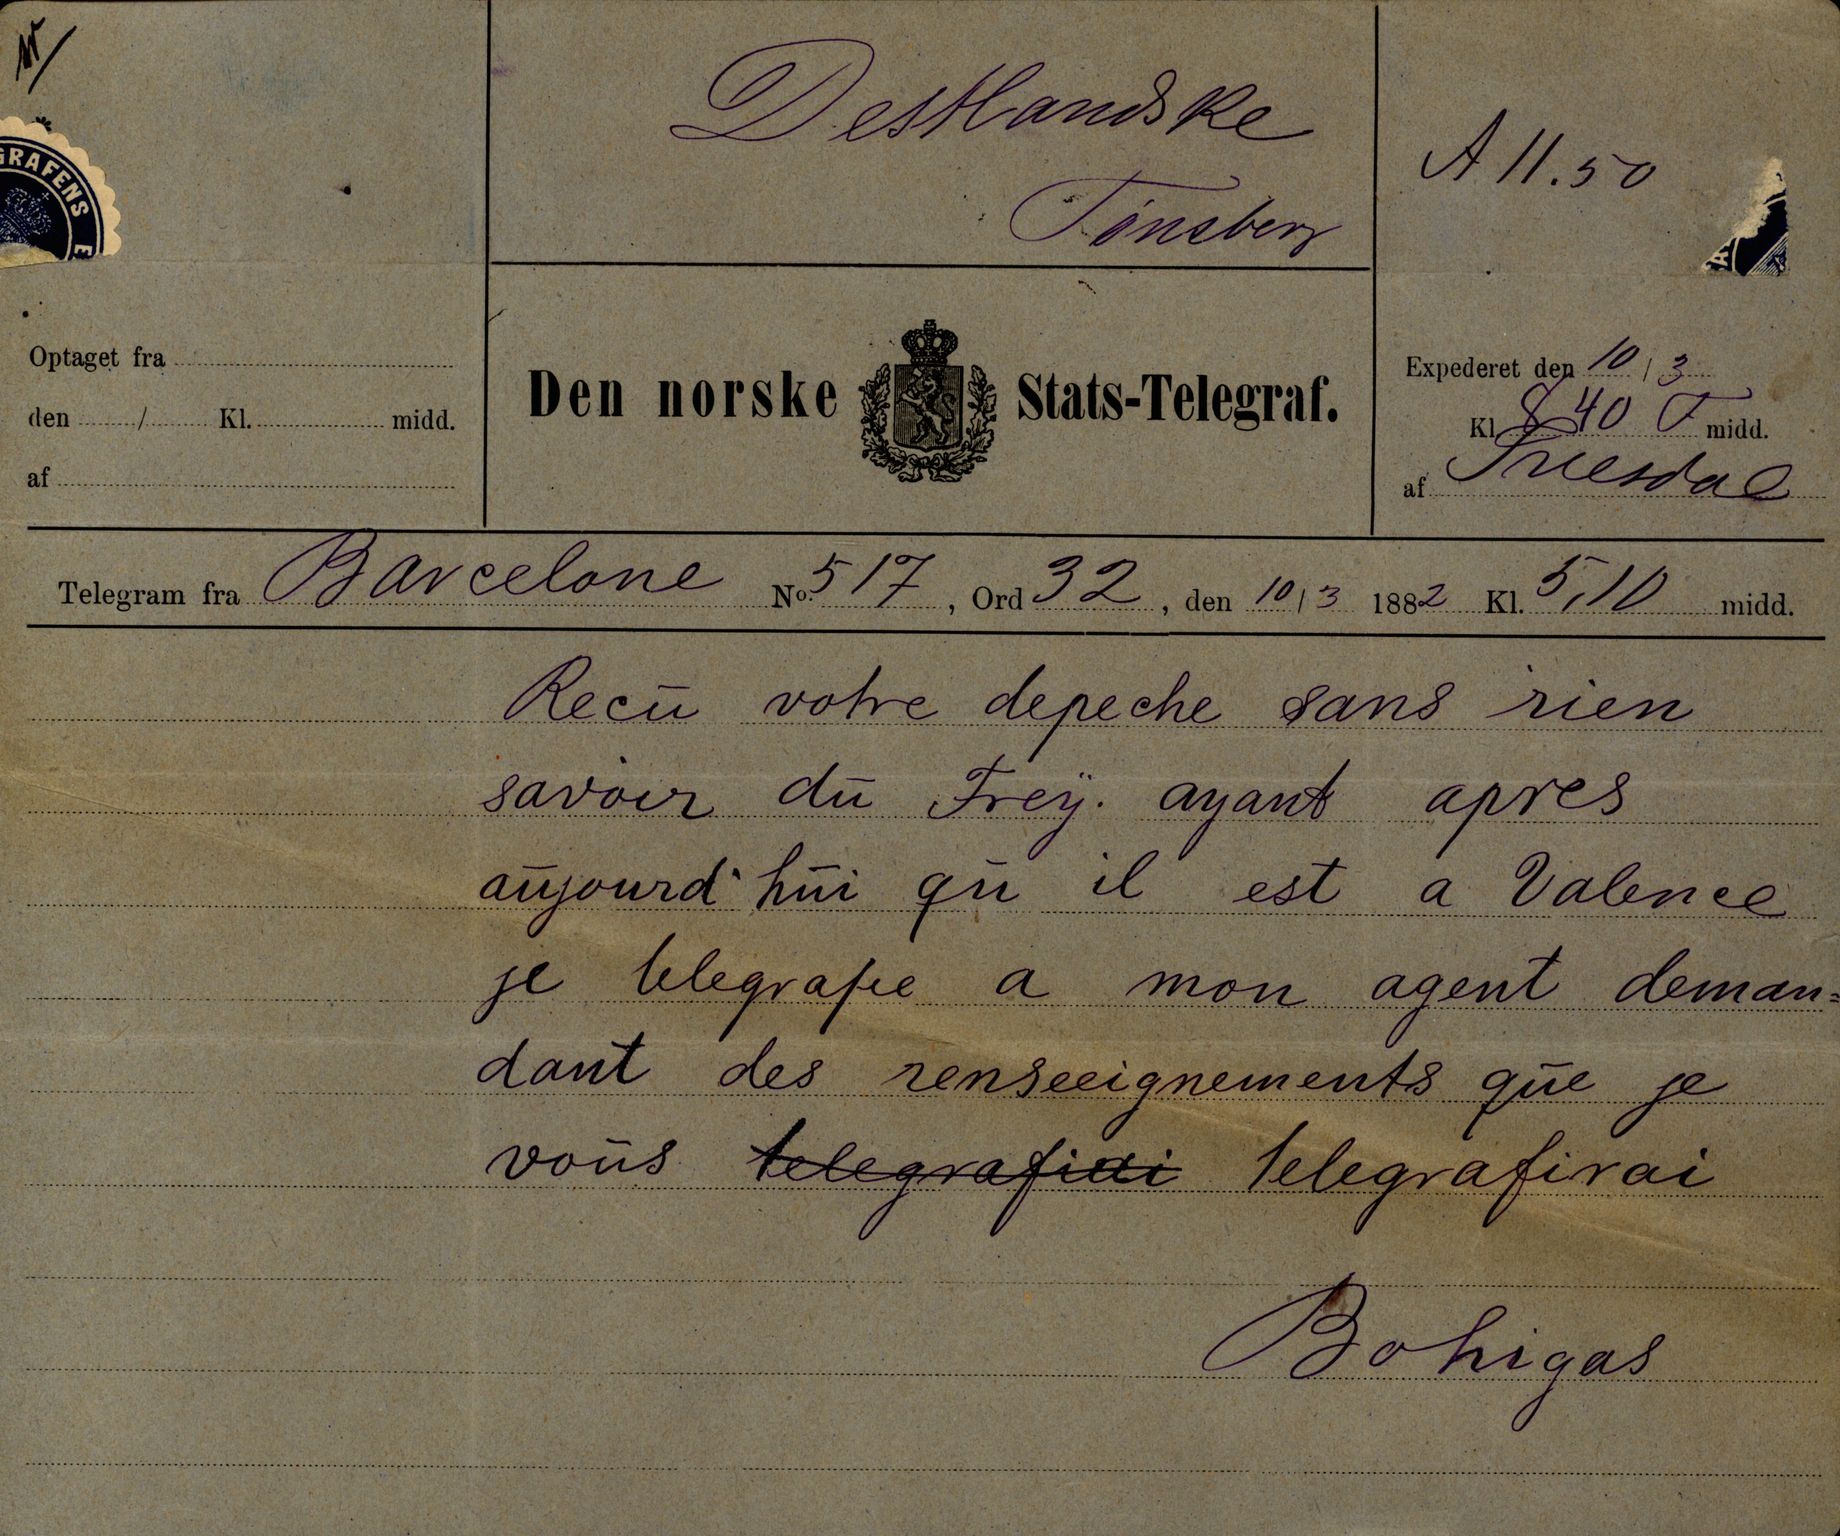 Destlandske
Tönsberg
A 11.50
GRAFENS E
Optaget fra
den / Kl. midd.
af
Den norske Stats-Telegraf.
Expederet den 10/3
Kl. 8 40 F midd.
af
Telegram fra Barcelone No. 517, Ord 32, den 10/3 1882 Kl. 5,10 midd.
Recu votre depeche sans rien
savoir du Frey. ayant apres
aujourd'hui qu il est a Valence
je telegrafie a mon agent deman=
dant des renseeignements que je
vous telegrafiai telegrafirai
Bohigas